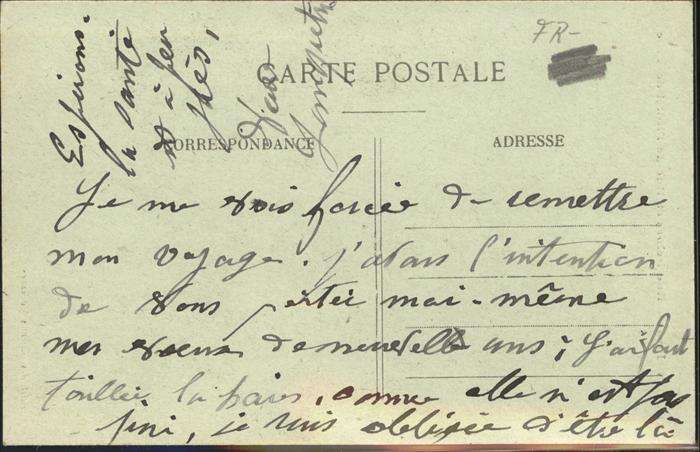 FR-
CARTE POSTALE
CORRESPONDANCE
ADRESSE
Je me vois forcée de remettre
mon voyage. j'avais l'intention
de vous porter moi-même
mes vœux de nouvelle ans; j'ai fait
tailler la haies, comme elle n'est pas
fini, je suis obligée d'être là
Espérons.
la santé
est à peu
près,